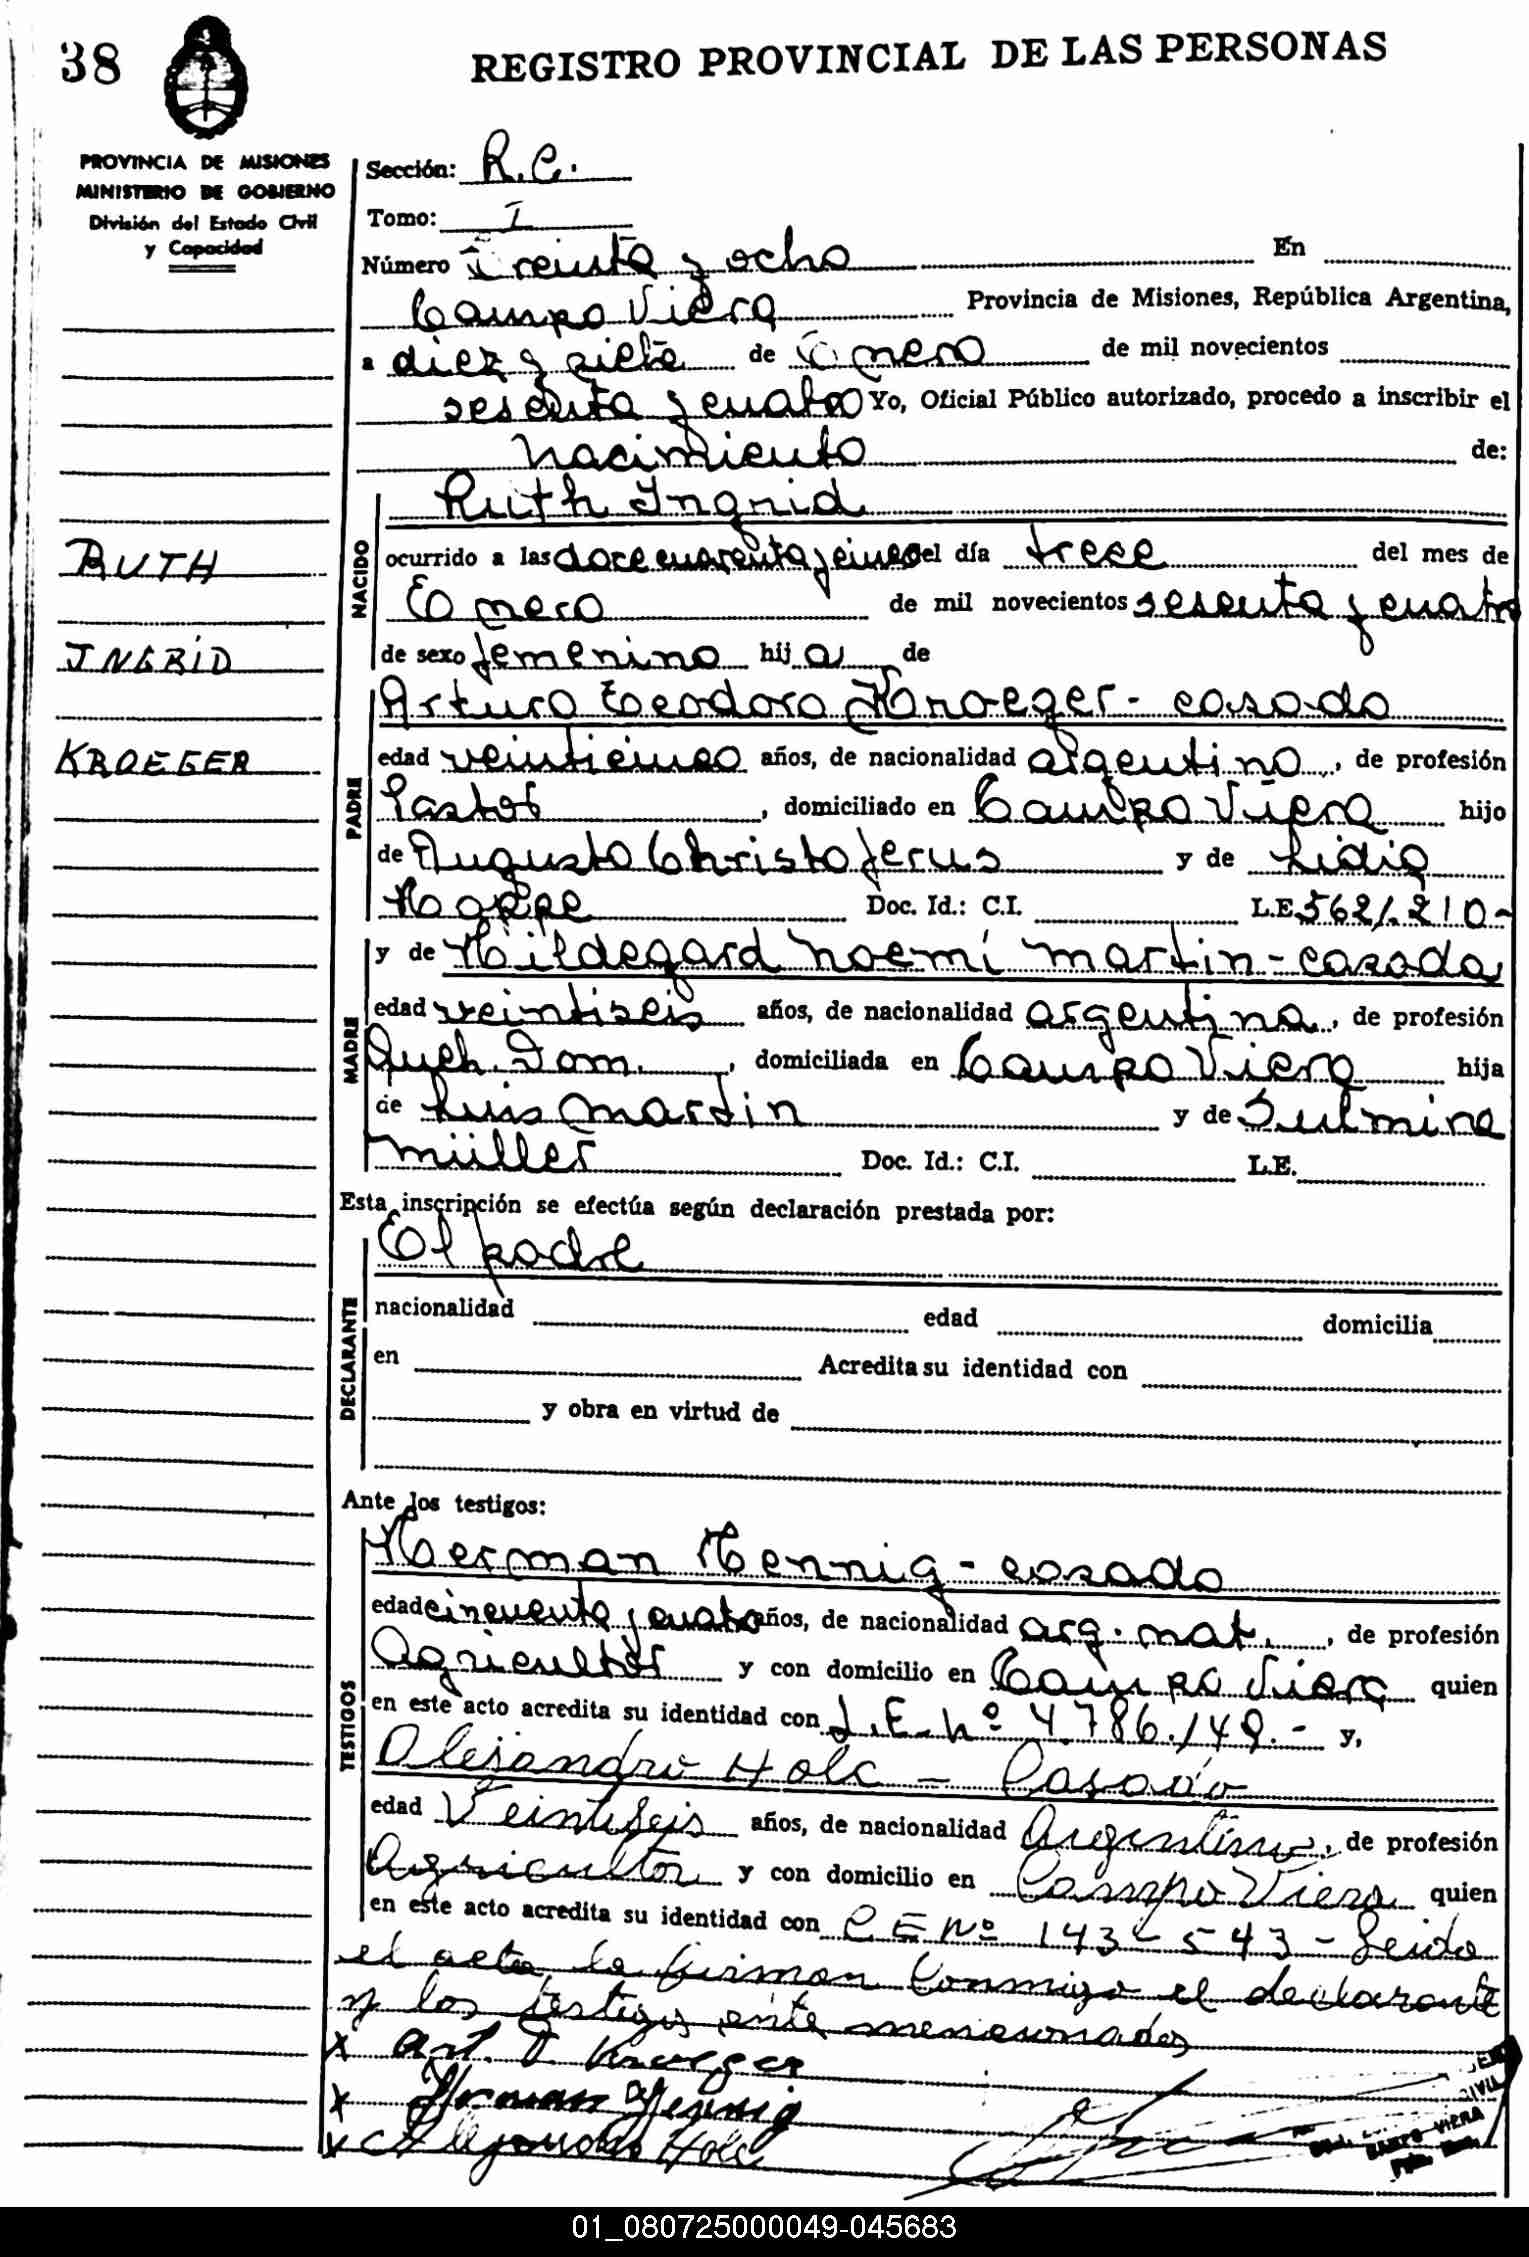 38
REGISTRO PROVINCIAL DE LAS PERSONAS
PROVINCIA DE MISIONES
MINISTERIO DE GOBIERNO
División del Estado Civil
y Capacidad
Sección: R.C.
Tomo: I
Número Treinta y ocho En
Campo Viera Provincia de Misiones, República Argentina,
a diez y siete de Enero de mil novecientos
sesenta y cuatro Yo, Oficial Público autorizado, procedo a inscribir el
nacimiento de:
Ruth Ingrid
RUTH
INGRID
KROEGER
NACIDO
ocurrido a las doce cuarenta y cinco del día trece del mes de
Enero de mil novecientos sesenta y cuatro
de sexo femenino hija de
PADRE
Arturo Teodoro Kroeger - casado
edad veinticinco años, de nacionalidad argentino, de profesión
Pastor, domiciliado en Campo Viera hijo
de Augusto Christoferus y de Lidia
Hoppe Doc. Id.: C.I. L.E. 562/.210-
MADRE
y de Hildegard Noemí Martin - casada
edad veintiseis años, de nacionalidad argentina, de profesión
Queh. Dom., domiciliada en Campo Viera hija
de Luis Martin y de Sulmina
Müller Doc. Id.: C.I. L.E.
Esta inscripción se efectúa según declaración prestada por:
DECLARANTE
El padre
nacionalidad edad domicilia
en Acredita su identidad con
y obra en virtud de
Ante los testigos:
TESTIGOS
Herman Hennig - casado
edad cincuenta y cuatro años, de nacionalidad arg. nat., de profesión
Agricultor y con domicilio en Campo Viera quien
en este acto acredita su identidad con L.E. Nº 7.786.149.- y,
Alejandro Holc - Casado
edad Veintiseis años, de nacionalidad Argentino, de profesión
Agricultor y con domicilio en Campo Viera quien
en este acto acredita su identidad con C E Nº 143-543 - Leido
el acta la firman Conmigo el declarante
y los testigos ante mencionados
x Art. T. Kroeger
x Herman Hennig
x Alejandro Holc
CAMPO VIERA
01_080725000049-045683